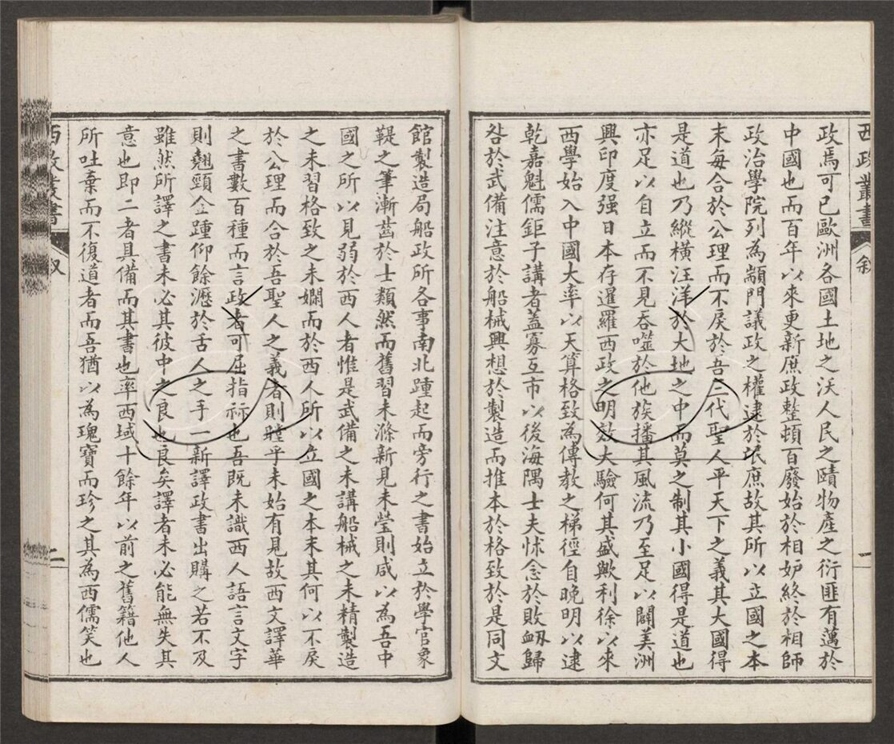 西政叢書
叙
一
政焉可已歐洲各國土地之沃人民之賾物產之衍匪有邁於
中國也而百年以來更新庶政整頓百廢始於相妒終於相師
政治學院列為顓門議政之權逮於氓庶故其所以立國之本
末每合於公理而不戾於吾三代聖人平天下之義其大國得
是道也乃縱橫汪洋於大地之中而莫之制其小國得是道也
亦足以自立而不見吞噬於他族播其風流乃至足以闢美洲
興印度强日本存暹羅西政之明效大驗何其盛歟利徐以來
西學始入中國大率以天算格致為傳教之梯徑自晚明以逮
乾嘉魁儒鉅子講者蓋寡互市以後海隅士夫怵念於敗衂歸
咎於武備注意於船械興想於製造而推本於格致於是同文
館製造局船政所各事南北踵起而旁行之書始立於學官象
鞮之筆漸齒於士類然而舊習未滌新見未瑩則咸以為吾中
國之所以見弱於西人者惟是武備之未講船械之未精製造
之未習格致之未嫻而於西人所以立國之本末其何以不戾
於公理而合於吾聖人之義者則瞠乎未始有見故西文譯華
之書數百種而言政者可屈指焉也吾既未識西人語言文字
則翹頸企踵仰餘瀝於舌人之手一新譯政書出購之若不及
雖然所譯之書未必其彼中之良也良矣譯者未必能無失其
意也即二者具備而其書也率西域十餘年以前之舊籍他人
所吐棄而不復道者而吾猶以為瑰寶而珍之其為西儒笑也
西政叢書
叙
二